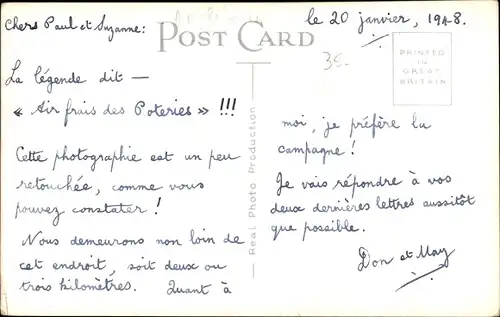 Chers Paul et Suzanne:
POST CARD
le 20 janvier, 1948.
35-
PRINTED
IN
GREAT
BRITAIN
La légende dit —
« Air frais des Poteries » !!!
Cette photographie est un peu
retouchée, comme vous
pouvez constater !
Nous demeurons non loin de
cet endroit, soit deux ou
trois kilomètres. Quant à
Real Photo Production
moi, je préfère la
campagne !
Je vais répondre à vos
deux dernières lettres aussitôt
que possible.
Don et May